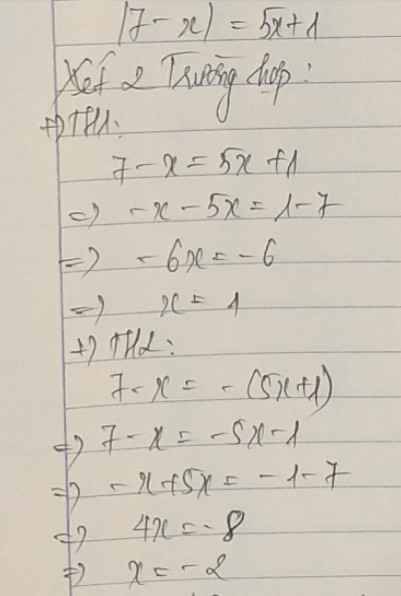 |7 - x| = 5x + 1
Xét 2 Trường hợp :
+) TH1:
7 - x = 5x + 1
=> - x - 5x = 1 - 7
=> - 6x = - 6
=> x = 1
+) TH2:
7 - x = - (5x + 1)
=> 7 - x = - 5x - 1
=> - x + 5x = - 1 - 7
=> 4x = - 8
=> x = - 2